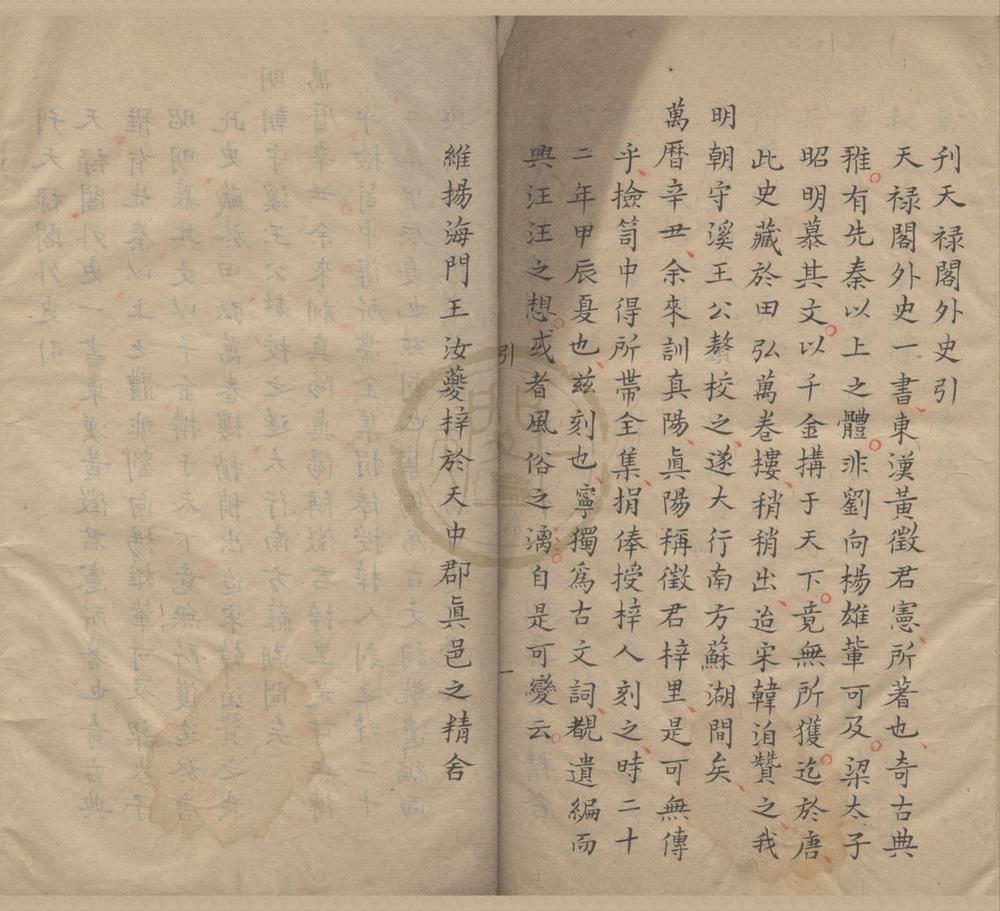 刊天祿閣外史引
天祿閣外史一書東漢黃徵君憲所著也奇古典
雅有先秦以上之體非劉向楊雄輩可及梁太子
昭明慕其文以千金搆于天下竟無所獲迄於唐
此史藏於田弘萬卷摟稍稍出迨宋韓洎贊之我
明朝守溪王公鏊校之遂大行南方蘇湖間矣
萬曆辛丑余來訓真陽真陽稱徵君梓里是可無傳
乎檢笥中得所帶全集捐俸授梓人刻之時二十
二年甲辰夏也茲刻也寧獨爲古文詞覩遺編而
興汪汪之想或者風俗之漓自是可變云
引
一
維揚海門王汝夔梓於天中郡眞邑之精舍